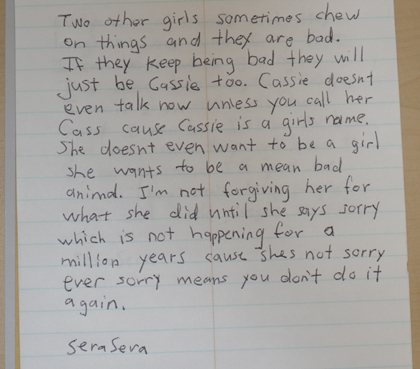 Two other girls sometimes chew
on things and they are bad.
If they keep being bad they will
just be Cassie too. Cassie doesnt
even talk now unless you call her
Cass cause Cassie is a girls name.
She doesnt even want to be a girl
she wants to be a mean bad
animal. I'm not forgiving her for
what she did until she says sorry
which is not happening for a
million years cause shes not sorry
ever sorry means you don't do it
again.
SeraSera